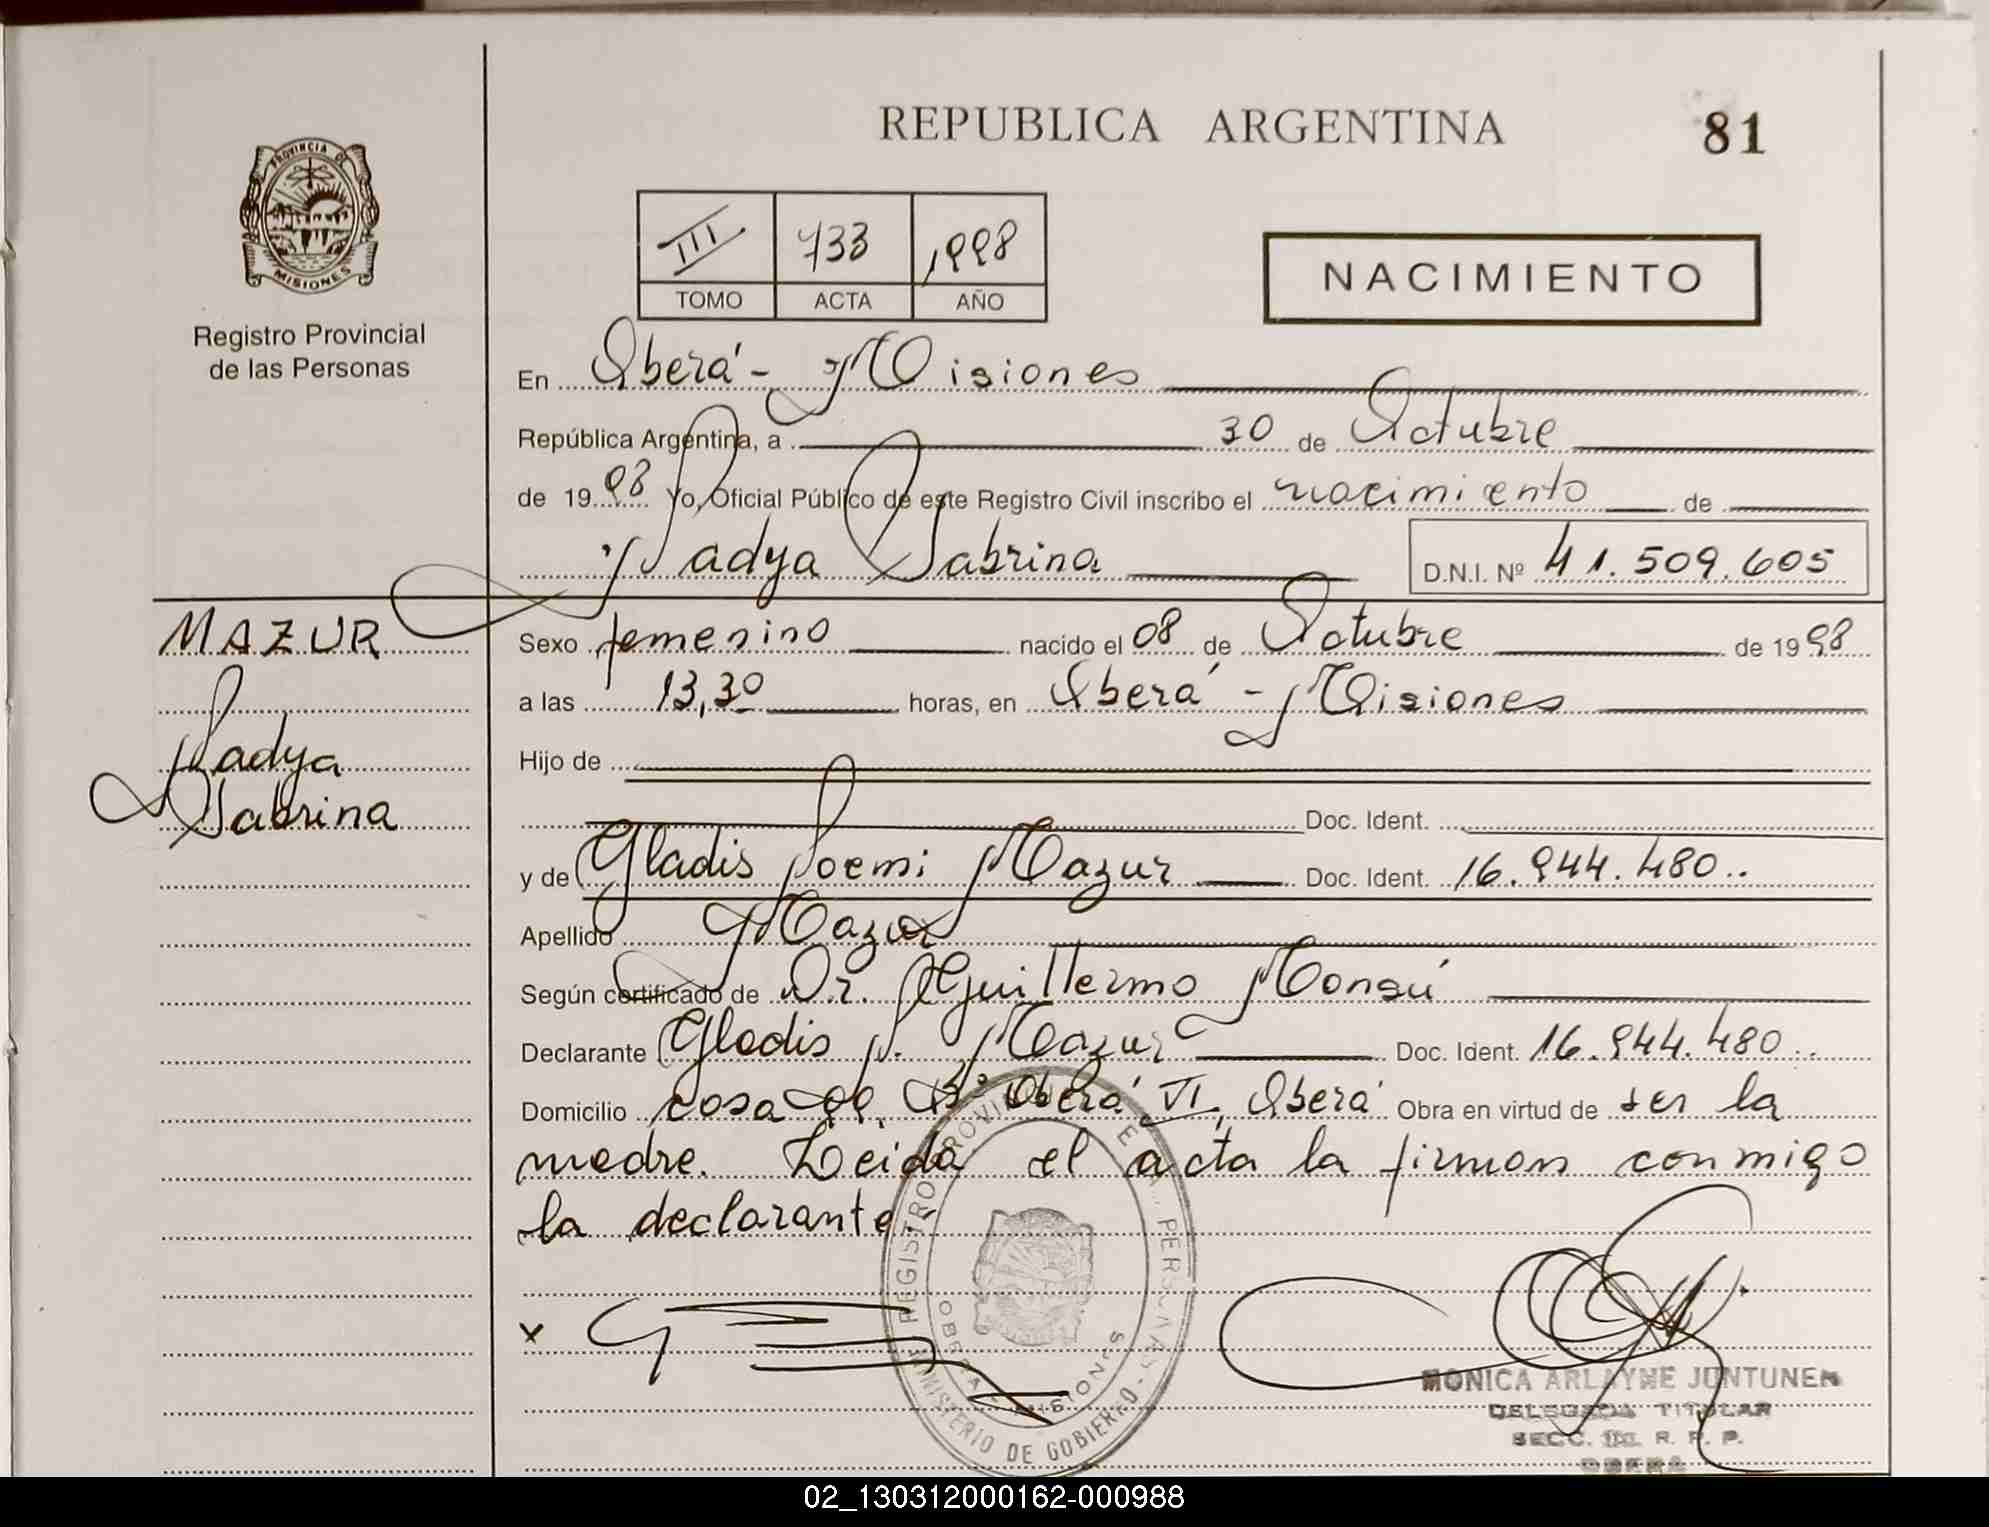 REPUBLICA ARGENTINA
81
PROVINCIA DE
MISIONES
Registro Provincial
de las Personas
III 733 1998
TOMO ACTA AÑO
NACIMIENTO
En Oberá - Misiones
República Argentina, a 30 de Octubre
de 1998 Yo, Oficial Público de este Registro Civil inscribo el nacimiento de
Nadya Sabrina D.N.I. Nº 41.509.605
MAZUR
Nadya
Sabrina
Sexo femenino nacido el 08 de Octubre de 1998
a las 13,30 horas, en Oberá - Misiones
Hijo de
Doc. Ident.
y de Gladis Noemi Mazur Doc. Ident. 16.944.480..
Apellido Mazur
Según certificado de Dr. Guillermo
Declarante Gladis N. Mazur Doc. Ident. 16.944.480..
Domicilio casa Bº Oberá VI, Oberá Obra en virtud de ser la
madre. Leida el acta la firman conmigo
la declarante
x
REGISTRO PROVINCIAL DE LAS PERSONAS - MINISTERIO DE GOBIERNO
OBERA MISIONES
MONICA ARLAYNE JUNTUNEN
DELEGADA TITULAR
SECC. R. P. P.
OBERA
02_130312000162-000988